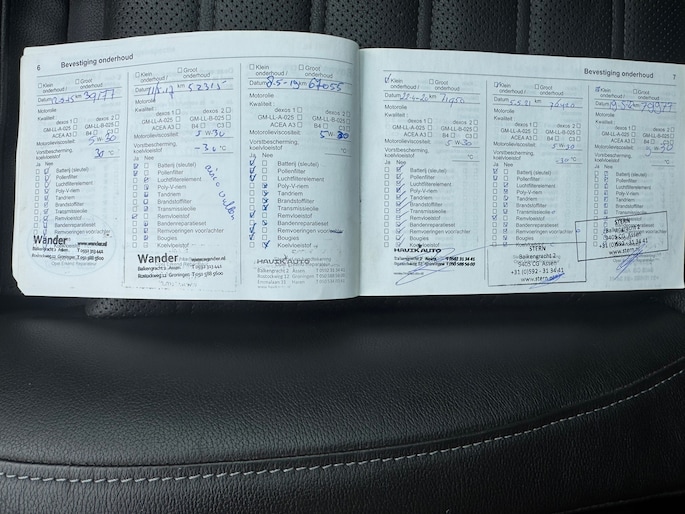 6 Bevestiging onderhoud
Klein onderhoud / Groot onderhoud
km 39177
Motorolie
Kwaliteit:
dexos 1 dexos 2
GM-LL-A-025 GM-LL-B-025
ACEA A3 B4 C3
Motorolieviscositeit: 5 W-30
Vorstbescherming, koelvloeistof 30 °C
Ja Nee
Batterij (sleutel)
Pollenfilter
Luchtfilterelement
Poly-V-riem
Tandriem
Brandstoffilter
Transmissieolie
Remvloeistof
Bandenreparatieset
Remvoeringen voor/achter
Bougies
Koelvloeistof
Wander
www.wander.nl
Balkengracht 2 Assen
Rostockweg 12 Groningen T 050 588 5600
Klein onderhoud / Groot onderhoud
Datum km 52315
Motorolie
Kwaliteit:
dexos 1 dexos 2
GM-LL-A-025 GM-LL-B-025
ACEA A3 B4 C3
Motorolieviscositeit: 5 W 30
Vorstbescherming, koelvloeistof -30 °C
Ja Nee
Batterij (sleutel)
Pollenfilter
Luchtfilterelement
Poly-V-riem
Tandriem
Brandstoffilter
Transmissieolie
Remvloeistof
Bandenreparatieset
Remvoeringen voor/achter
Bougies
Koelvloeistof
Wander
www.wander.nl
Balkengracht 2 Assen
Rostockweg 12 Groningen T 050 588 5600
Klein onderhoud / Groot onderhoud
Datum km 67055
Motorolie
Kwaliteit:
dexos 1 dexos 2
GM-LL-A-025 GM-LL-B-025
ACEA A3 B4 C3
Motorolieviscositeit: 5 W 30
Vorstbescherming, koelvloeistof °C
Ja Nee
Batterij (sleutel)
Pollenfilter
Luchtfilterelement
Poly-V-riem
Tandriem
Brandstoffilter
Transmissieolie
Remvloeistof
Bandenreparatieset
Remvoeringen voor/achter
Bougies
Koelvloeistof
HAVIK AUTO
Balkengracht 2 Assen T 0592 31 34 41
Rostockweg 12 Groningen T 050 588 56 00
Bevestiging onderhoud 7
Klein onderhoud / Groot onderhoud
Datum km 71950
Motorolie
Kwaliteit:
dexos 1 dexos 2
GM-LL-A-025 GM-LL-B-025
ACEA A3 B4 C3
Motorolieviscositeit: 5 W 30
Vorstbescherming, koelvloeistof °C
Ja Nee
Batterij (sleutel)
Pollenfilter
Luchtfilterelement
Poly-V-riem
Tandriem
Brandstoffilter
Transmissieolie
Remvloeistof
Bandenreparatieset
Remvoeringen voor/achter
Bougies
Koelvloeistof
HAVIK AUTO
Balkengracht 2 Assen T 0592 31 34 41
Rostockweg 12 Groningen T 050 588 56 00
Klein onderhoud / Groot onderhoud
Datum 5.5.21 km 76420
Motorolie
Kwaliteit:
dexos 1 dexos 2
GM-LL-A-025 GM-LL-B-025
ACEA A3 B4 C3
Motorolieviscositeit: 5 W 30
Vorstbescherming, koelvloeistof -30 °C
Ja Nee
Batterij (sleutel)
Pollenfilter
Luchtfilterelement
Poly-V-riem
Tandriem
Brandstoffilter
Transmissieolie
Remvloeistof
Bandenreparatieset
Remvoeringen voor/achter
Bougies
STERN
Balkengracht 2
9405 CG Assen
+31 (0)592 - 31 34 41
www.stern.nl
Klein onderhoud / Groot onderhoud
Datum km 79977
Motorolie
Kwaliteit:
dexos 1 dexos 2
GM-LL-A-025 GM-LL-B-025
ACEA A3 B4 C3
Motorolieviscositeit: 5 W 30
Vorstbescherming, koelvloeistof °C
Ja Nee
Batterij (sleutel)
Pollenfilter
Luchtfilterelement
Poly-V-riem
Tandriem
Brandstoffilter
Transmissieolie
Remvloeistof
STERN
Balkengracht 2
9405 CG Assen
+31 (0)592 - 31 34 41
www.stern.nl